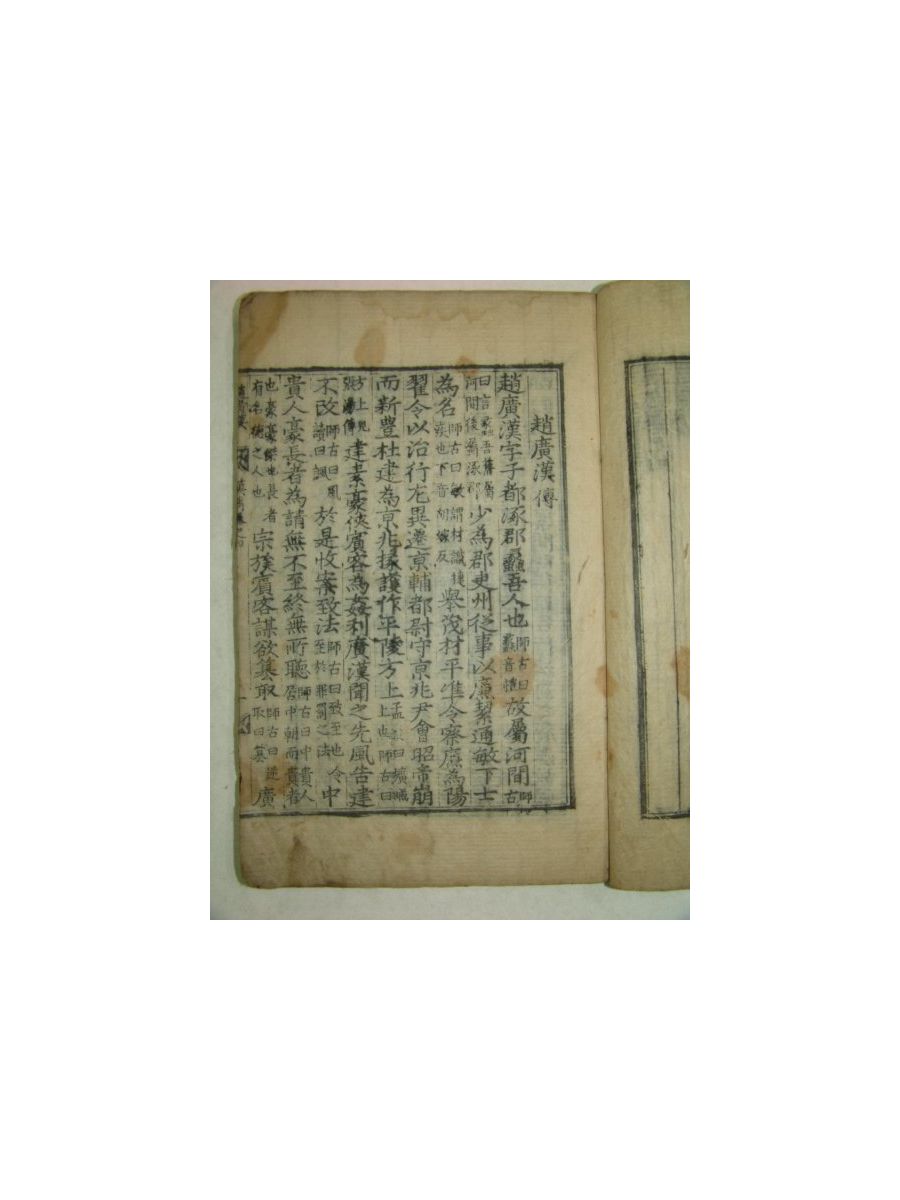 趙廣漢傳
趙廣漢字子都涿郡蠡吾人也師古曰蠡音禮故屬河間師古
曰言蠡吾舊屬河間後屬涿郡少為郡吏州從事以廉絜通敏下士
為名師古曰敏謂材識捷疾也下音胡嫁反舉茂材平準令察廉為陽
翟令以治行尤異遷京輔都尉守京兆尹會昭帝崩
而新豐杜建為京兆掾護作平陵方上孟康曰壙臧上也師古曰
方上見張湯傳建素豪俠賓客為姦利廣漢聞之先風告建
不改師古曰風讀曰諷於是收案致法師古曰致至也令至於罪罰之法中
貴人豪長者為請無不至終無所聽師古曰中貴人居中朝而貴者
也豪豪傑也長者有名德之人也宗族賓客謀欲篡取師古曰逆取曰篡廣